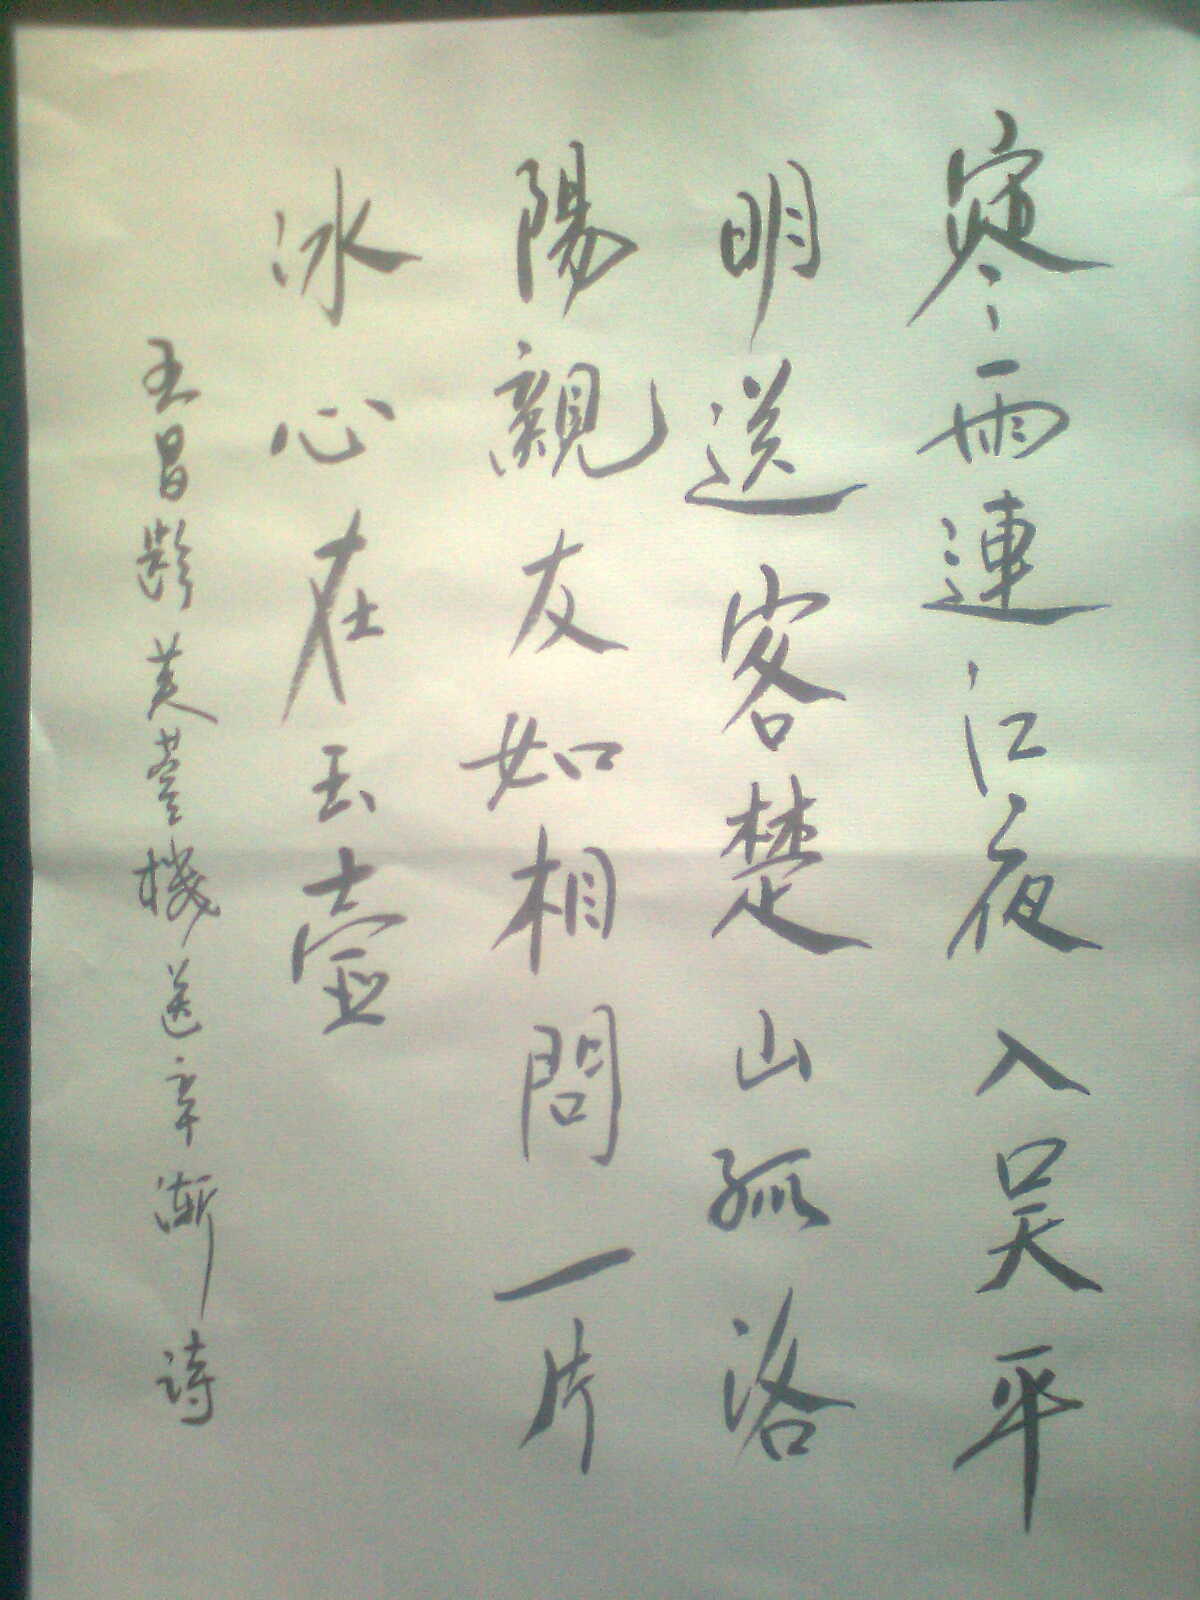 寒雨連江夜入吴平
明送客楚山孤洛
陽親友如相問一片
冰心在玉壺
王昌齡芙蓉樓送辛漸詩